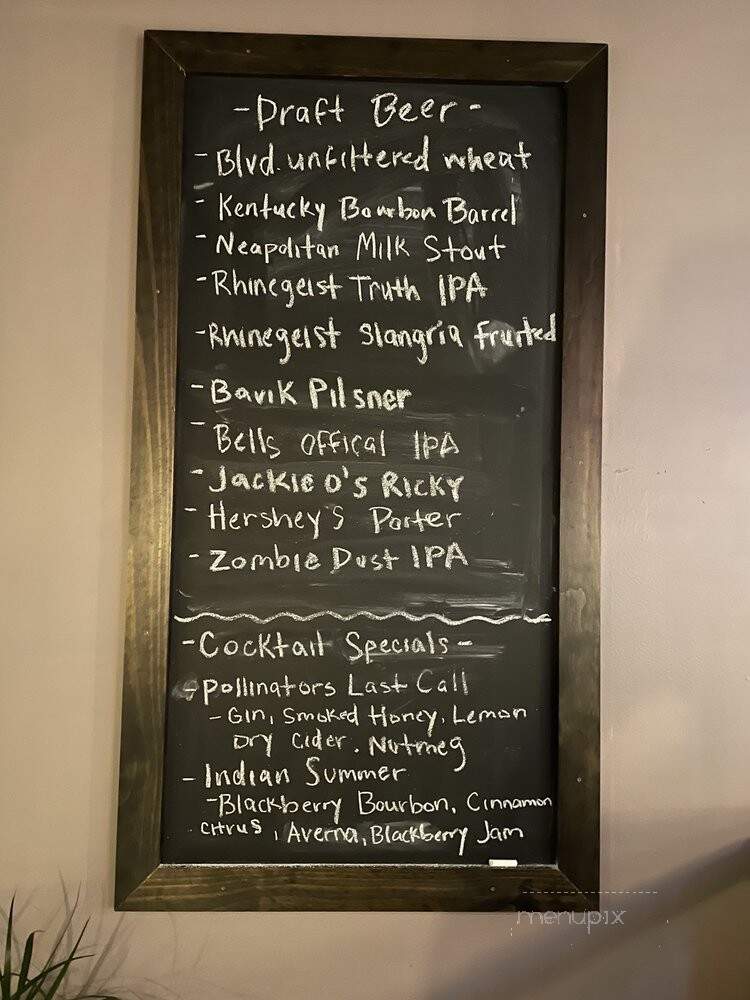 - Draft Beer -
- Blvd. unfittered wheat
- Kentucky Bourbon Barrel
- Neapolitan Milk Stout
- Rhinegeist Truth IPA
- Rhinegeist Slangria fruited
- Bavik Pilsner
- Bells Offical IPA
- Jackie O's Ricky
- Hershey's Porter
- Zombie Dust IPA
- Cocktail Specials -
- Pollinators Last Call
- Gin, Smoked Honey, Lemon
Dry Cider. Nutmeg
- Indian Summer
- Blackberry Bourbon, Cinnamon
citrus, Averna, Blackberry Jam
menupix